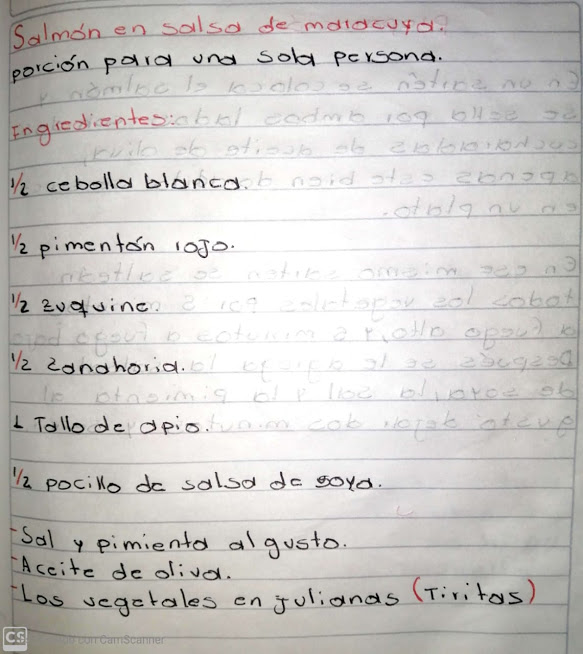 Salmón en salsa de maracuya.
porción para una sola persona.
Ingredientes:
1/2 cebolla blanca.
1/2 pimentón rojo.
1/2 zuquine.
1/2 zanahoria.
1 Tallo de apio.
1/2 pocillo de salsa de soya.
-Sal y pimienta al gusto.
-Aceite de oliva.
-Los vegetales en julianas (Tiritas)
CS
con CamScanner